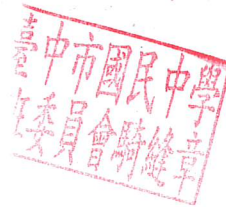 臺中市國民中學
委員會騎縫章